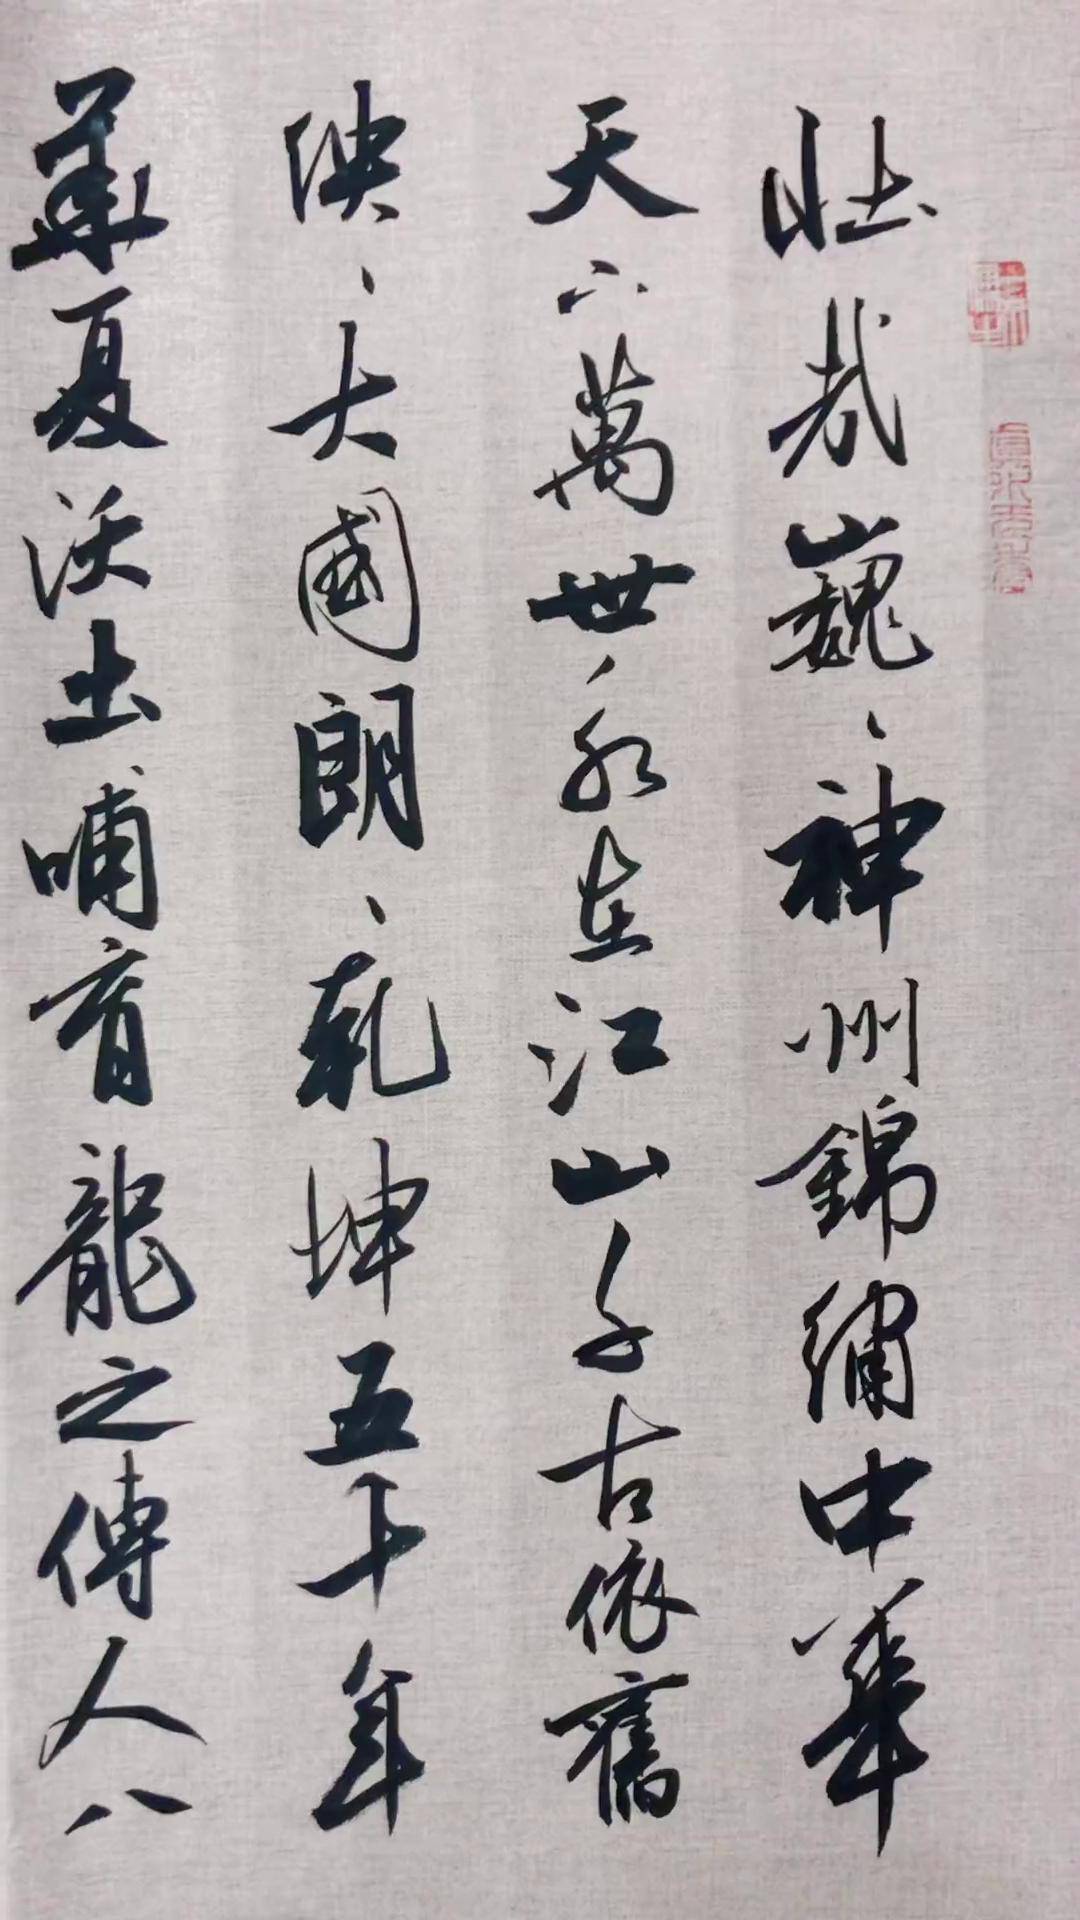 壯哉巍、神州錦繡中華
天下萬世、永在江山千古依舊
泱、大國朗、乾坤五千年
華夏沃土哺育龍之傳人八